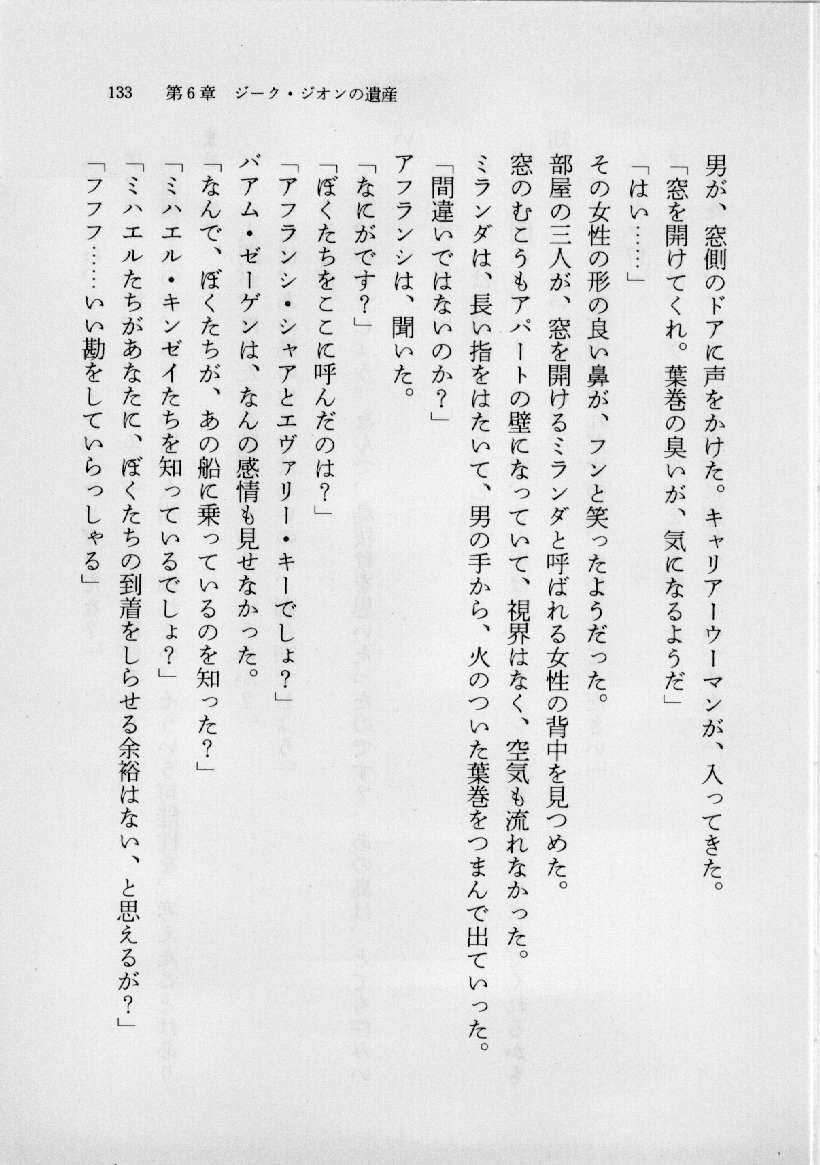 133　第6章　ジーク・ジオンの遺産
男が、窓側のドアに声をかけた。キャリアーウーマンが、入ってきた。
「窓を開けてくれ。葉巻の臭いが、気になるようだ」
「はい……」
その女性の形の良い鼻が、フンと笑ったようだった。
部屋の三人が、窓を開けるミランダと呼ばれる女性の背中を見つめた。
窓のむこうもアパートの壁になっていて、視界はなく、空気も流れなかった。
ミランダは、長い指をはたいて、男の手から、火のついた葉巻をつまんで出ていった。
「間違いではないのか？」
アフランシは、聞いた。
「なにがです？」
「ぼくたちをここに呼んだのは？」
「アフランシ・シャアとエヴァリー・キーでしょ？」
バアム・ゼーゲンは、なんの感情も見せなかった。
「なんで、ぼくたちが、あの船に乗っているのを知った？」
「ミハエル・キンゼイたちを知っているでしょ？」
「ミハエルたちがあなたに、ぼくたちの到着をしらせる余裕はない、と思えるが？」
「フフフ……いい勘をしていらっしゃる」